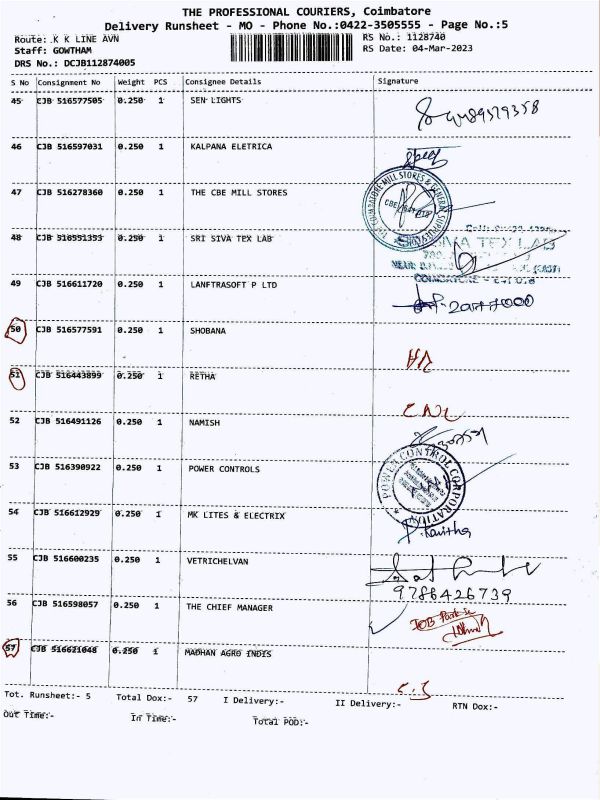 THE PROFESSIONAL COURIERS, Coimbatore
Delivery Runsheet - MO - Phone No.:0422-3505555 - Page No.:5
Route: K K LINE AVN RS No.: 1128740
Staff: GOWTHAM RS Date: 04-Mar-2023
DRS No.: DCJB112874005
S No Consignment No Weight PCS Consignee Details Signature
45 CJB 516577505 0.250 1 SEN LIGHTS
46 CJB 516597031 0.250 1 KALPANA ELETRICA
47 CJB 516278360 0.250 1 THE CBE MILL STORES
THE COIMBATORE MILL STORES & GENERAL SUPPLIES
48 CJB 516551353 0.250 1 SRI SIVA TEX LAB
SIVA TEX LAB
49 CJB 516611720 0.250 1 LANFTRASOFT P LTD
50 CJB 516577591 0.250 1 SHOBANA
51 CJB 516443899 0.250 1 RETHA
52 CJB 516491126 0.250 1 NAMISH
53 CJB 516390922 0.250 1 POWER CONTROLS
POWER CONTROL CORPORATION
54 CJB 516612929 0.250 1 MK LITES & ELECTRIX
55 CJB 516600235 0.250 1 VETRICHELVAN
9786426739
56 CJB 516598057 0.250 1 THE CHIEF MANAGER
57 CJB 516621048 0.250 1 MADHAN AGRO INDIS
Tot. Runsheet:- 5 Total Dox:- 57 I Delivery:- II Delivery:- RTN Dox:-
Out Time:- In Time:- Total POD:-